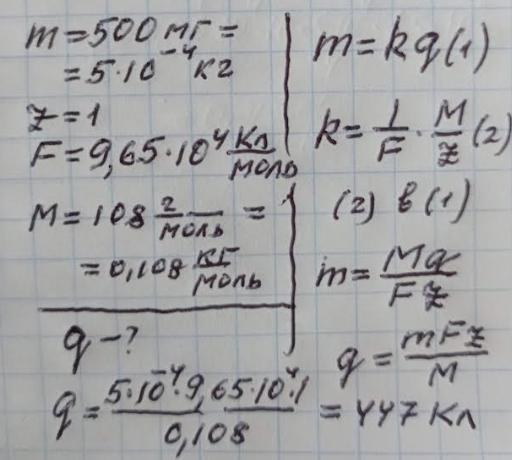 m = 500 мг =
= 5·10⁻⁴ кг
z = 1
F = 9,65·10⁴ Кл/моль
M = 108 г/моль =
= 0,108 кг/моль
q – ?
m = kq (1)
k = 1/F · M/z (2)
(2) в (1)
m = Mq/Fz
q = mFz/M
q = 5·10⁻⁴·9,65·10⁴·1/0,108 = 447 Кл